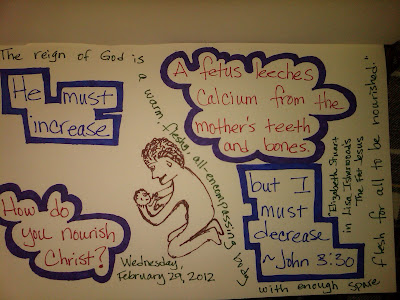 The reign of God is
a warm, fleshy, all-encompassing body
with enough spare
flesh for all to be nourished."
~Elizabeth Stuart
in Lisa Isherwood's
The Fat Jesus
He must
increase
A fetus leeches
calcium from the
mother's teeth
and bones.
but I
must
decrease
~John 3:30
How do
you nourish
Christ?
Wednesday,
February 29, 2012